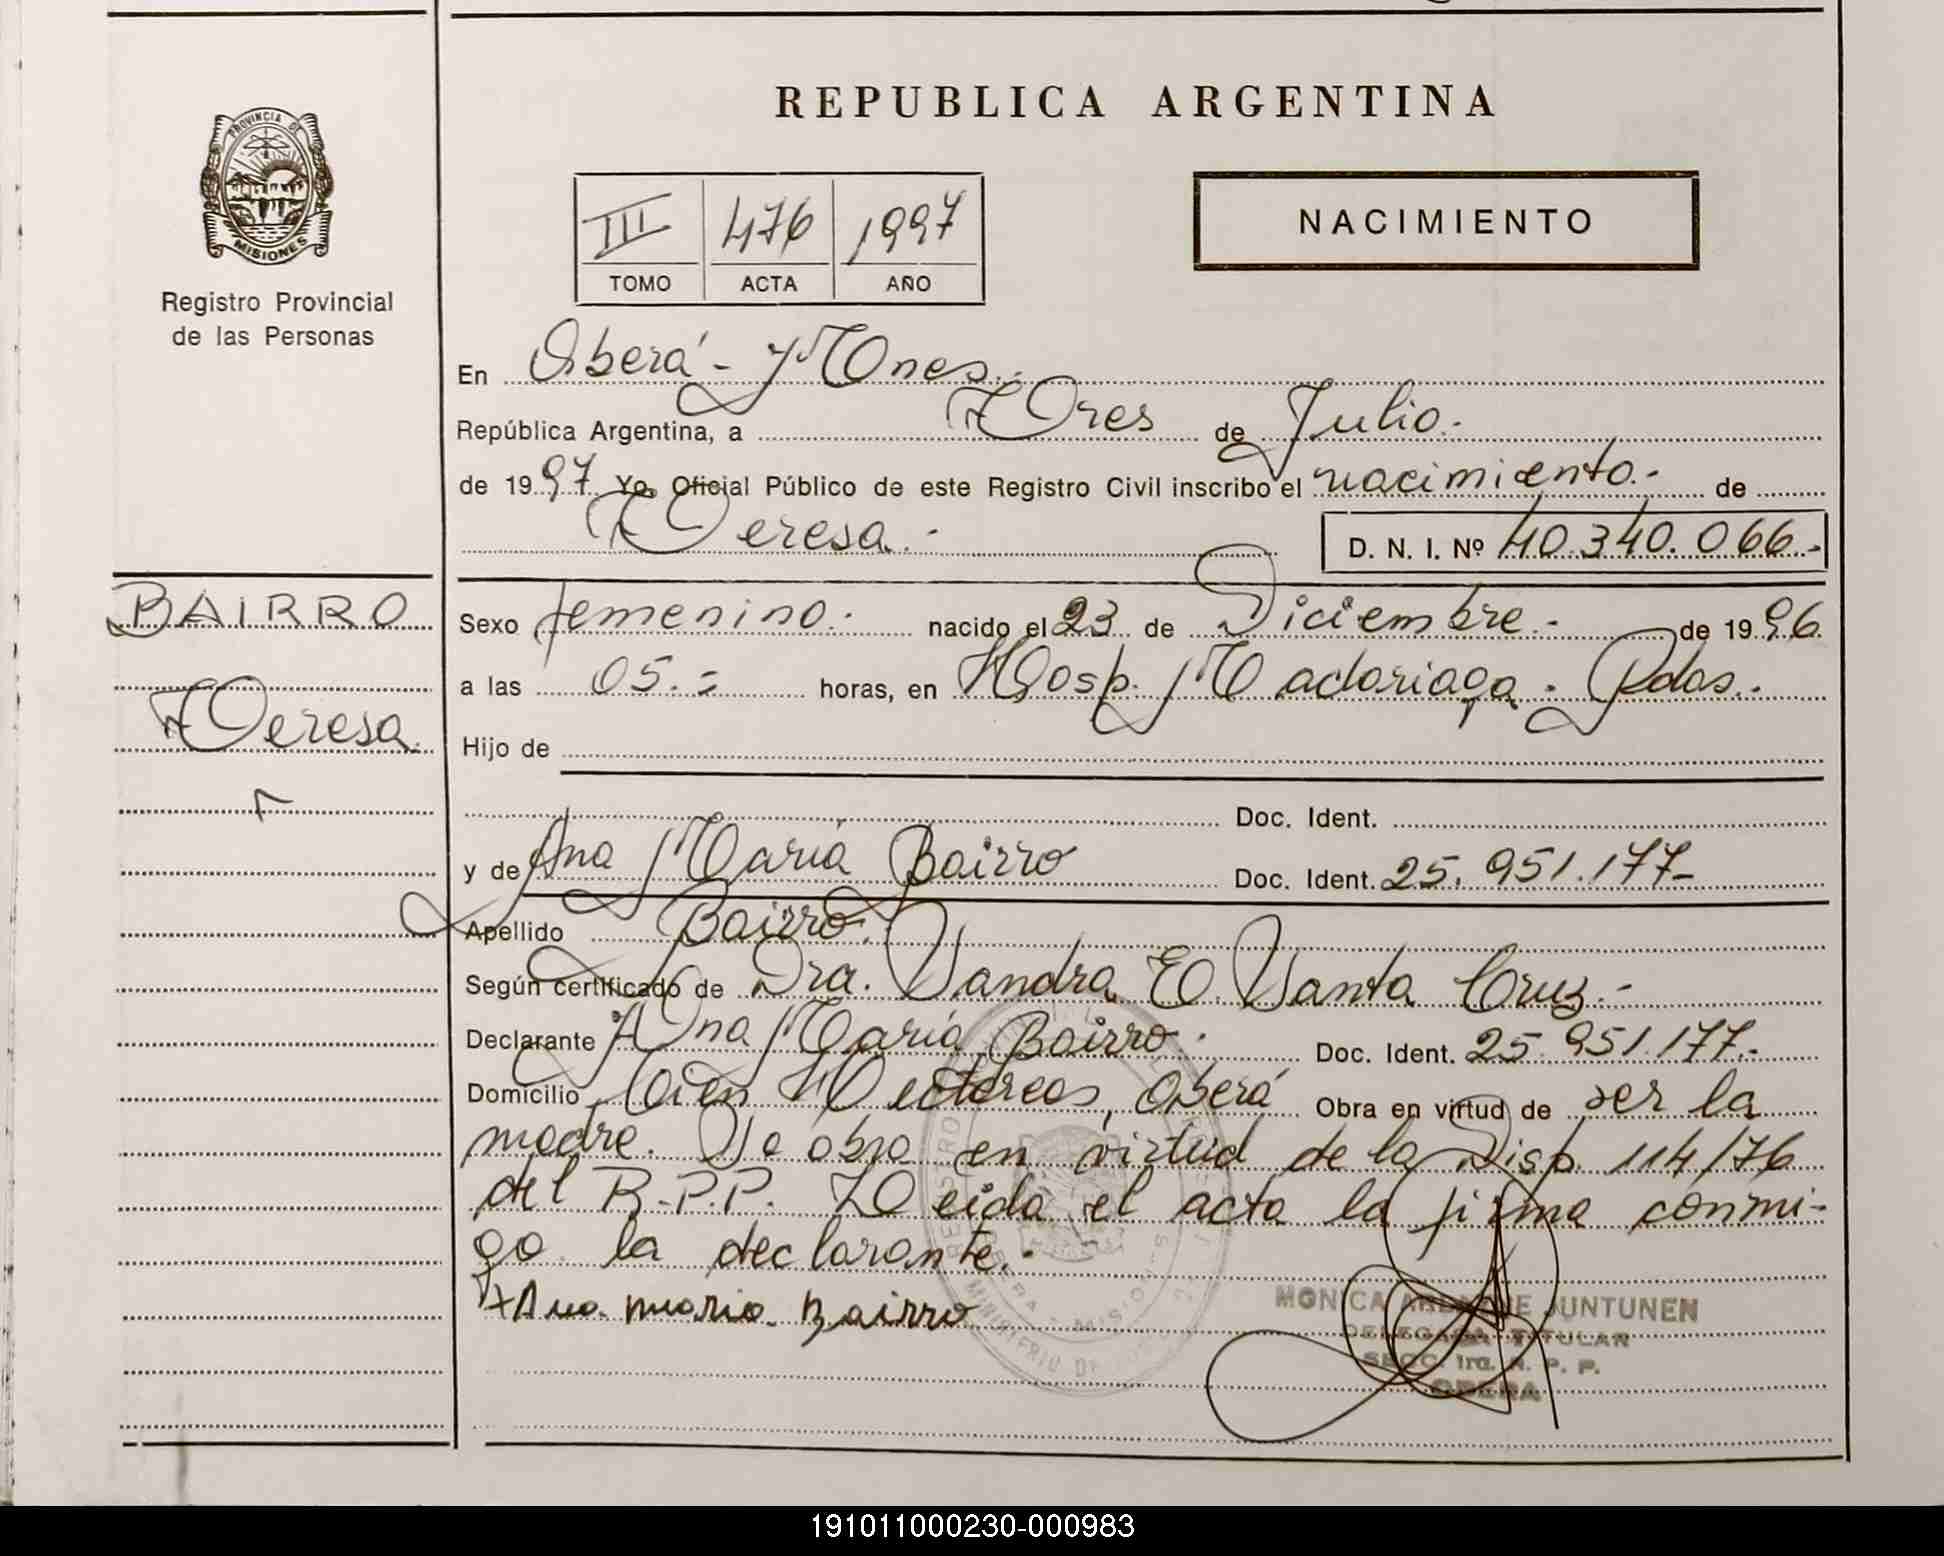 PROVINCIA DE
MISIONES
Registro Provincial
de las Personas
REPUBLICA ARGENTINA
III 476 1997
TOMO ACTA AÑO
NACIMIENTO
En Oberá - Mnes.
República Argentina, a Tres de Julio.-
de 1997 Yo, Oficial Público de este Registro Civil inscribo el nacimiento.- de
Teresa.- D. N. I. Nº 40.340.066.-
BAIRRO
Teresa
Sexo femenino.- nacido el 23 de Diciembre.- de 1996
a las 05.= horas, en Hosp. Madariaga. Pdas.-
Hijo de
Doc. Ident.
y de Ana María Bairro Doc. Ident. 25.951.177-
Apellido Bairro.-
Según certificado de Dra. Sandra E. Santa Cruz.-
Declarante Ana María Bairro.- Doc. Ident. 25.951.177.-
Domicilio Cien Hectareas, Oberá Obra en virtud de ser la
madre. Se obra en virtud de la Disp. 114/76
del R.P.P. Leida el acta la firma conmi-
go la declarante.-
Ana Maria Bairro
MONICA JUNTUNEN
DELEGADA TITULAR
SECC. 1ra. R. P. P.
OBERA
191011000230-000983